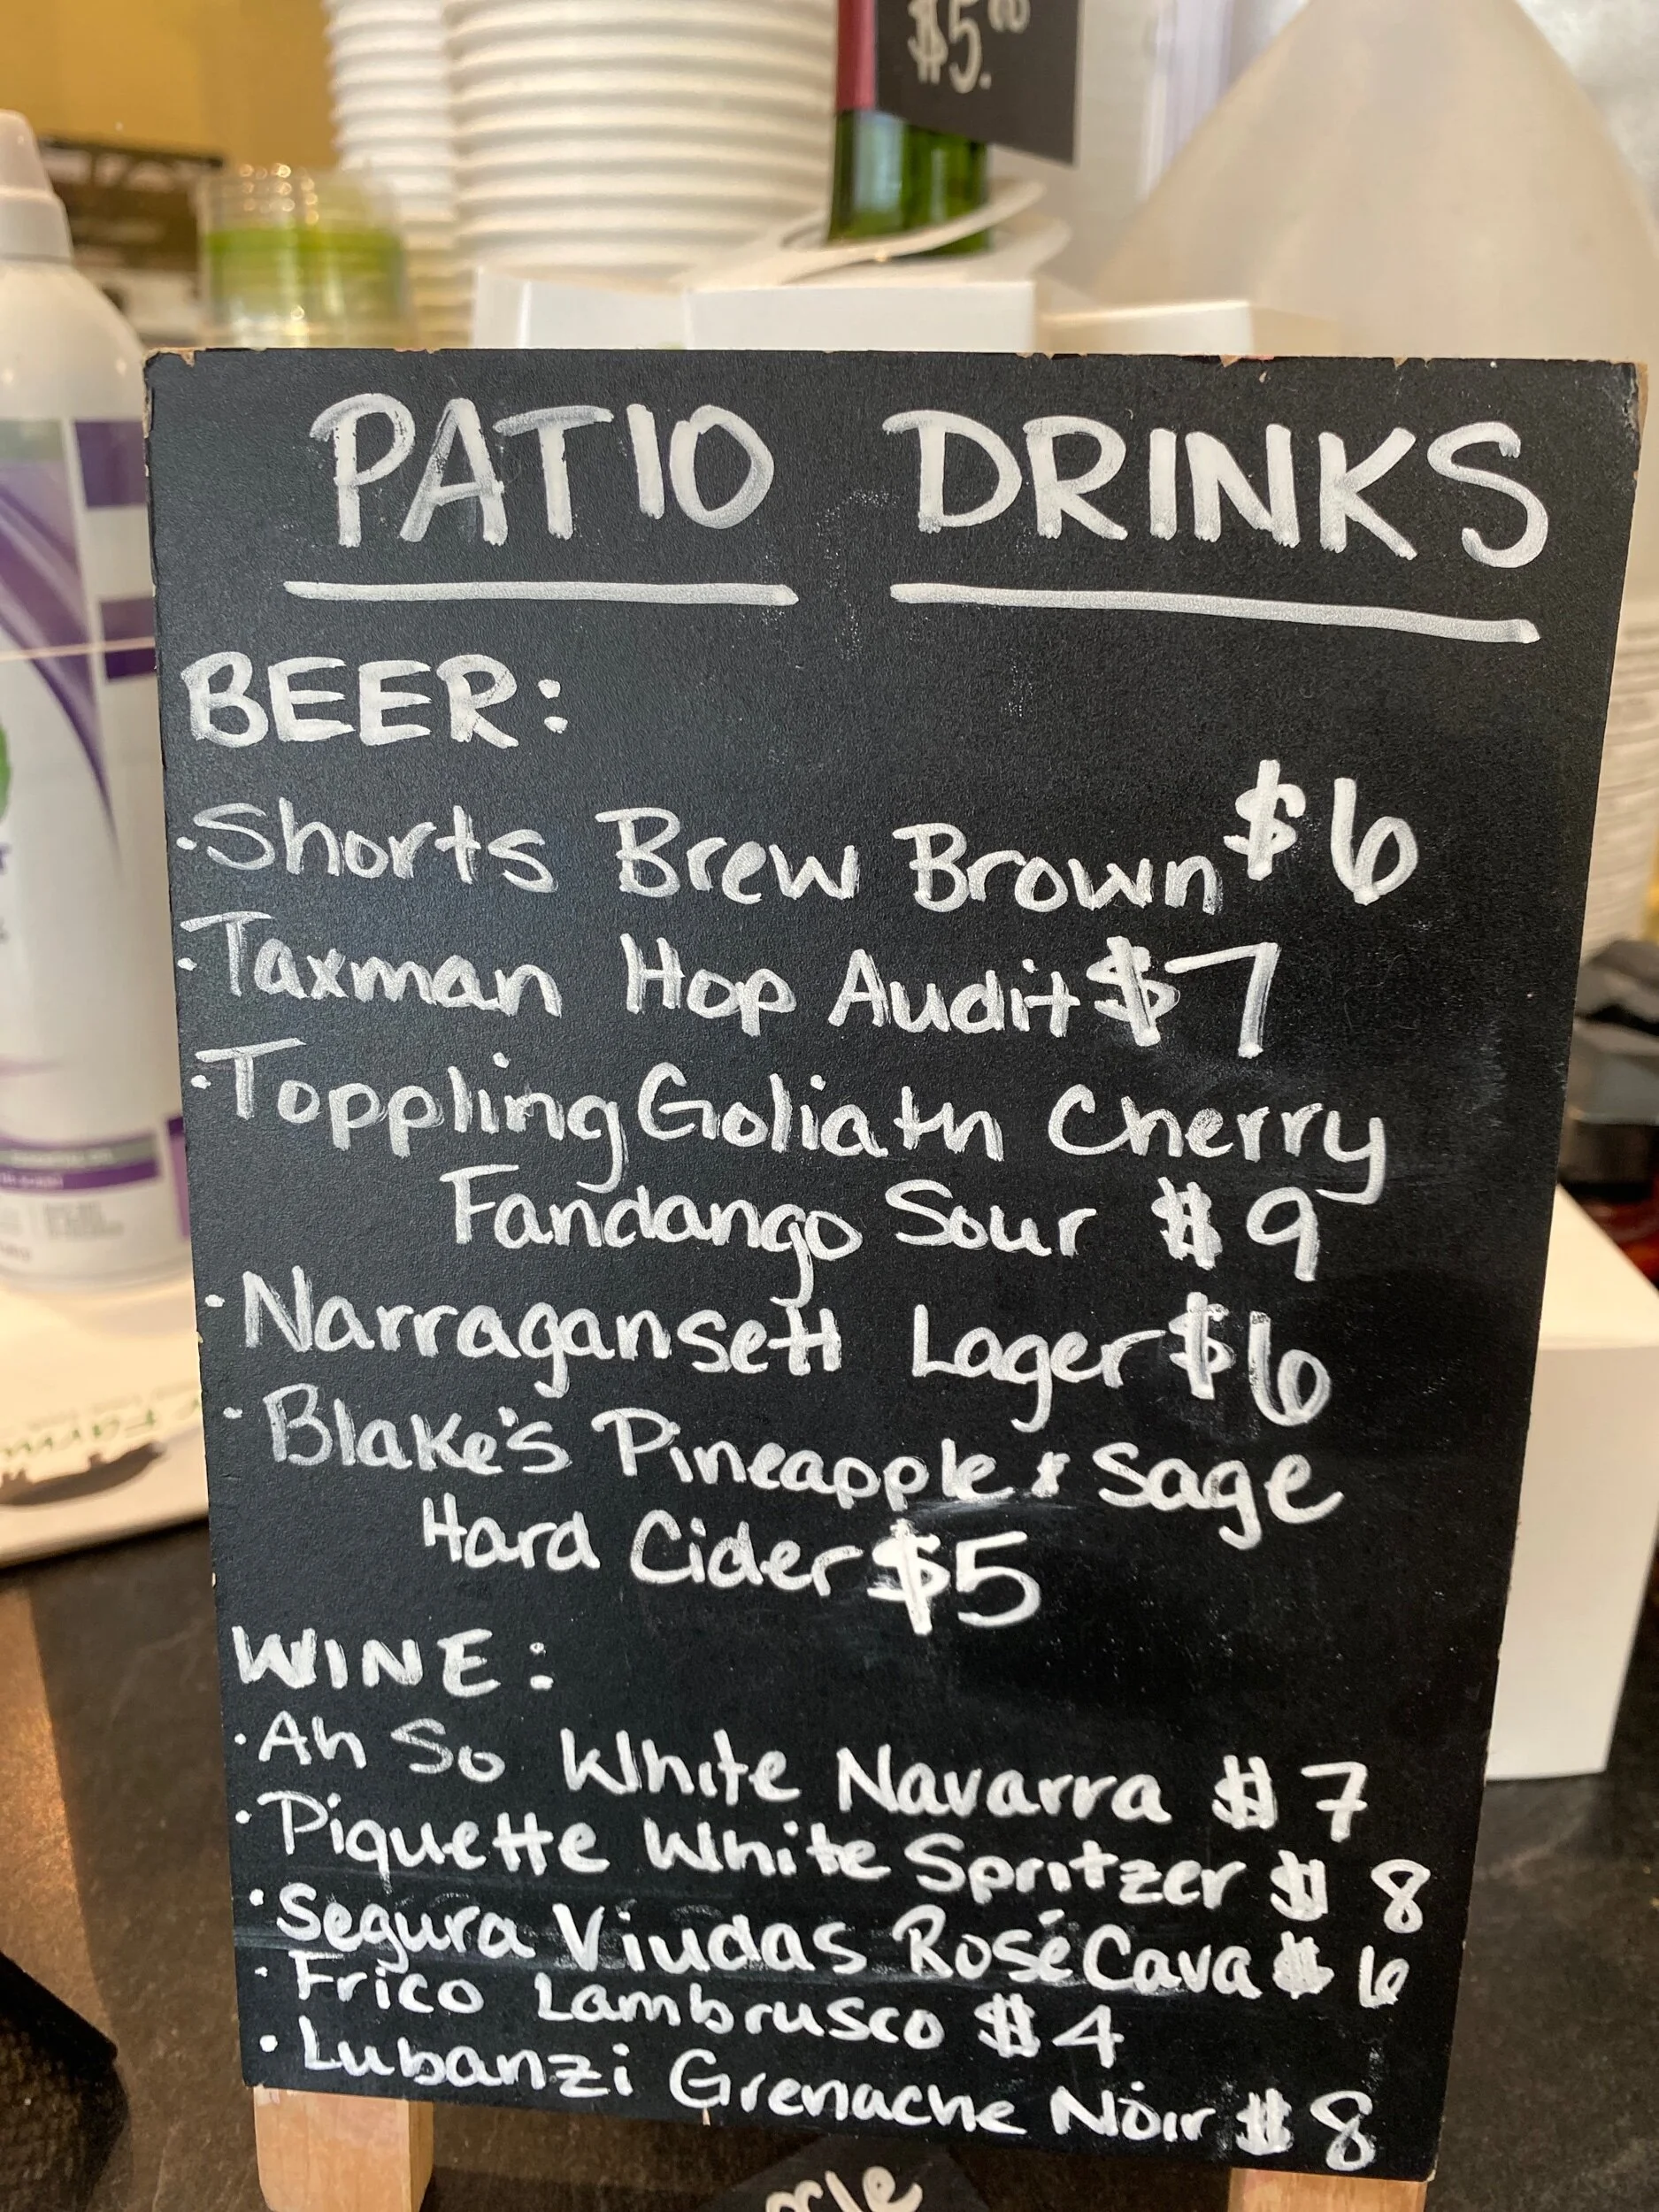 $5.00
PATIO DRINKS
BEER:
·Shorts Brew Brown $6
·Taxman Hop Audit $7
·Toppling Goliath Cherry
Fandango Sour $9
·Narragansett Lager $6
·Blake's Pineapple & Sage
Hard Cider $5
WINE:
·Ah So White Navarra $7
·Piquette White Spritzer $8
·Segura Viudas Rosé Cava $6
·Frico Lambrusco $4
·Lubanzi Grenache Noir $8